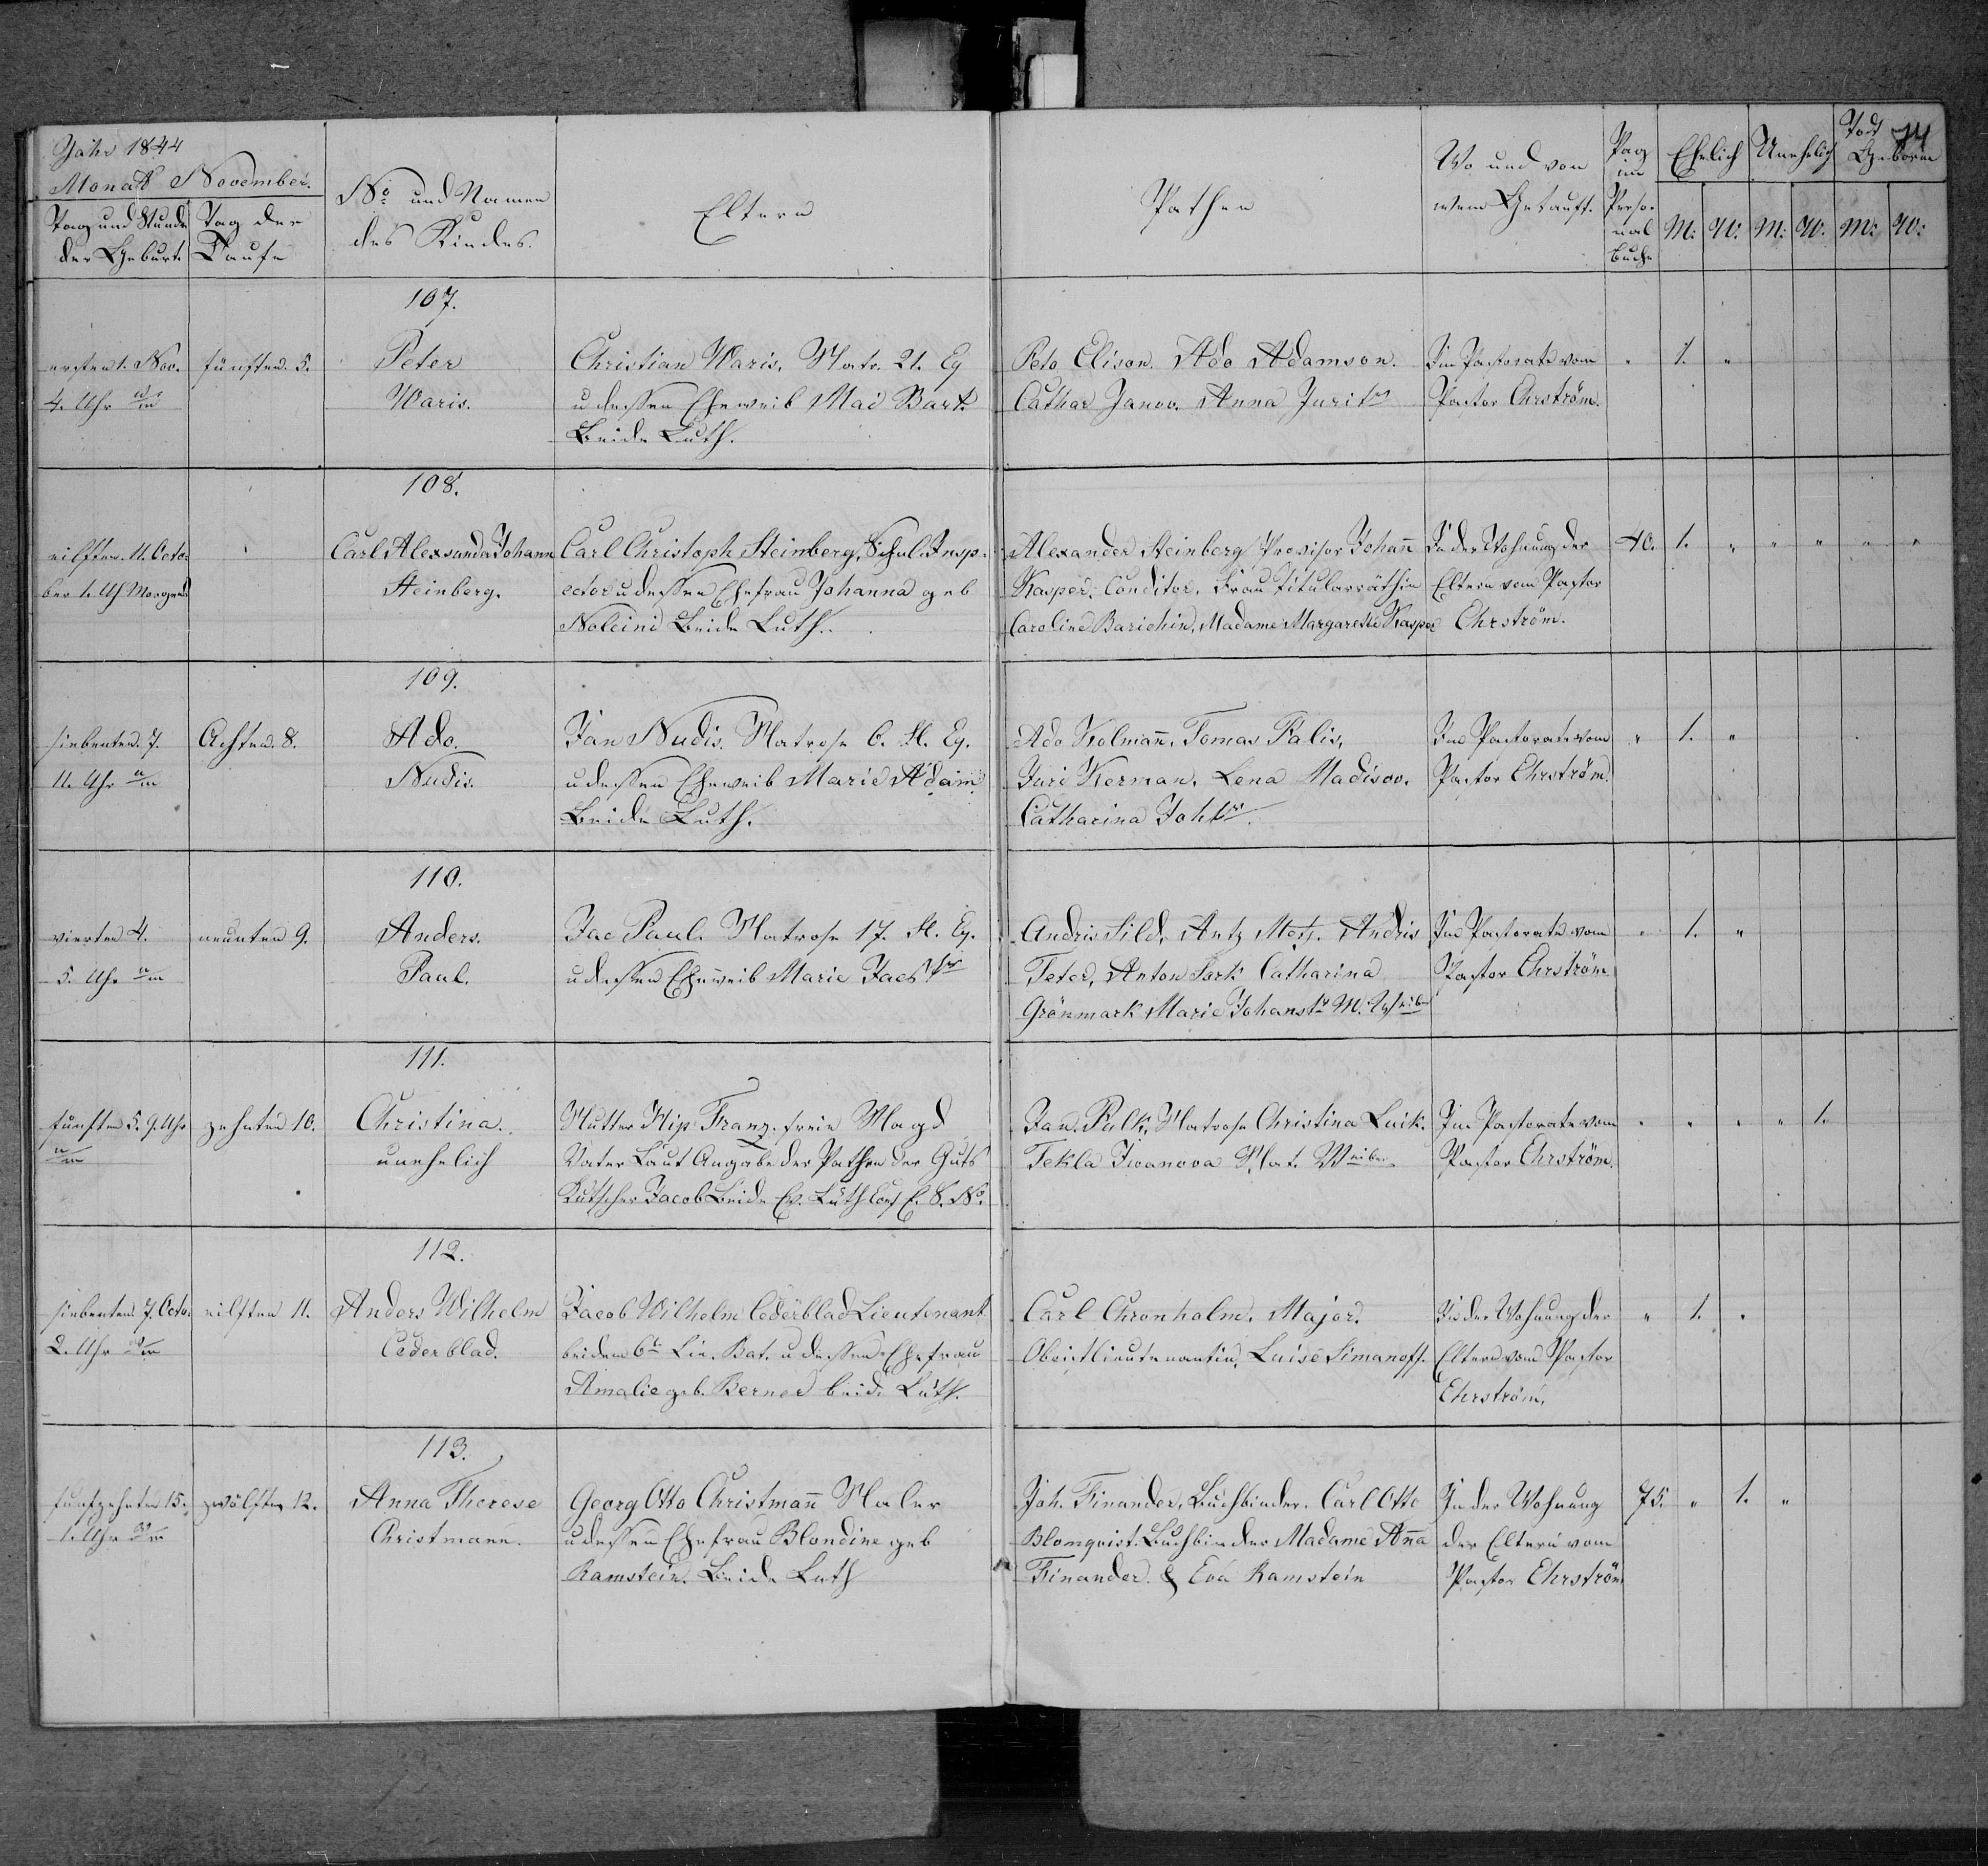 Jahr 1844
Monath November.
Tag und Stunde
der Geburt.
Tag der
Taufe
No. und Namen
des Kindes.
Eltern
Pathen
Wo und von
wem Getauft.
Pag
im
Perso-
nal
Buche
Ehelich
Unehelich
Todt
Geboren
74
M: W: M: W: M: W:
107.
ersten 1. Nov.
4. Uhr
fünften. 5.
Peter
Waris.
Christian Waris, Matr. 21. Eq
u dessen Eheweib Mai Bart.
Beide Luth.
Peto Elison. Ado Adamson.
Cathar Janov. Anna Jurits
Im Pastorate vom
Pastor Ehrström.
" 1. "
108.
eilften. 11. Octo-
ber 1. Uh Morgens
Carl Alexander Johann
Steinberg.
Carl Christoph Steinberg, Schul. Insp-
ector u dessen Ehefrau Johanna geb
Nolcini Beide Luth.
Alexander Steinberg Provisor Johann
Kasper, Conditor. Frau Titularräthin
Caroline Barichin, Madame Margarethe Kasper
In der Wohnung der
Eltern vom Pastor
Ehrström.
40. 1. " " " " "
109.
siebenten. 7.
11. Uhr
Achten. 8.
Ado.
Nudis.
Jan Nudis. Matrose 6. Fl. Eq.
u dessen Eheweib Marie Adam
Beide Luth.
Ado Kolmann. Tomas Palis,
Juri Kerman. Lena Madisov.
Catharina
Im Pastorate vom
Pastor Ehrström.
" 1. "
110.
vierten 4.
5. Uhr
neunten 9.
Anders.
Paul.
Jac Paul. Matrose 17. Fl. Eq.
u dessen Eheweib Marie
Andris Sild, Antz Andris
Peter, Anton Sark Catharina
Grönmark Marie
Im Pastorate vom
Pastor Ehrström
" 1. "
111.
fünften 5. 9. Uhr
zehnten 10.
Christina.
unehelich
Mutter Franz. freie Magd
Vater Laut Angabe der Pathen der Guts
Kutscher Jacob Beide Ev. Luth
Jan. Pulk, Matrose Christina Luik.
Tekla Iwanova Mat. Weiber
Im Pastorate vom
Pastor Ehrström.
" " " " 1.
112.
siebenten 7. Octo.
2. Uhr
eilften 11.
Anders Wilhelm
Cederblad.
Jacob Wilhelm Cederblad Lieutenant
bei dem 6t Lin. Bat. u dessen Ehefrau
Amalie geb. Berner beide Luth.
Carl Chronholm. Major.
Obristlieutenantin, Luise Simanoff.
In der Wohnung der
Eltern vom Pastor
Ehrström.
" 1. "
113.
funfzehnten 15.
1. Uhr
zwölften 12.
Anna Therese
Christmann.
Georg Otto Christmann Maler
u dessen Ehefrau Blondine geb
Ramstein. Beide Luth
Joh. Finander, Buchbinder. Carl Otto
Blomqvist. Buchbinder Madame Anna
Finander. & Eva Ramstein
In der Wohnung
der Eltern vom
Pastor Ehrström
75. " 1. "